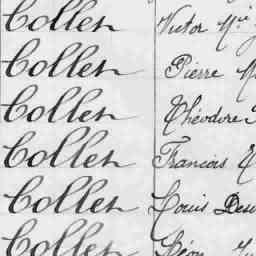 Collet Victor M
Collet Pierre M
Collet Théodore
Collet Francois
Collet Louis Desi
Collet Léon